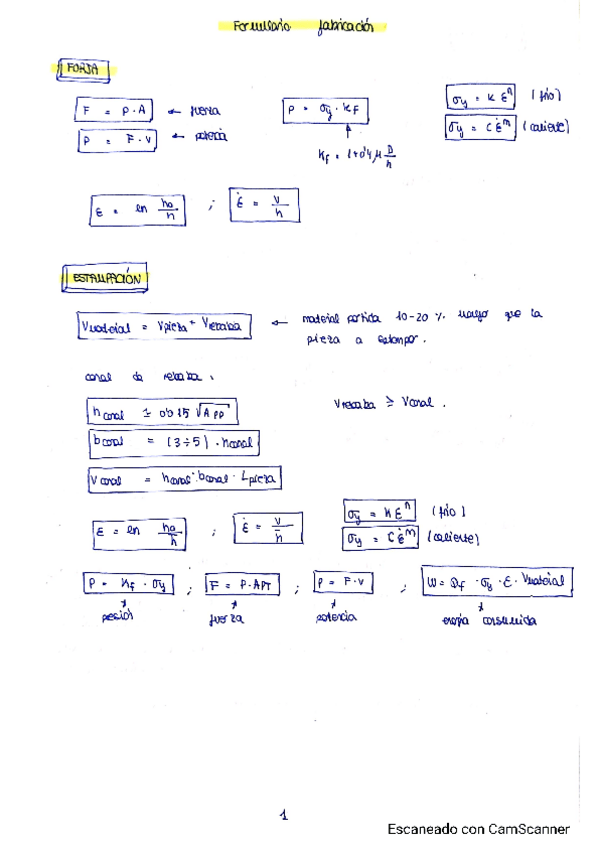 Formulario fabricación
FORJA
F = P·A ← fuerza
P = σy · KF
σy = K ε^n (frío)
P = F·V ← potencia
σy = C ε̇^m (caliente)
Kf = 1+0'4 μ D/h
ε = ln ho/h ; ε̇ = v/h
ESTAMPACIÓN
Vmaterial = Vpieza + Vrebaba ← material partida 10-20 % mayor que la
pieza a estampar.
canal de rebaba:
hcanal ≃ 0'015 √APP
Vrebaba ≥ Vcanal.
bcanal = (3÷5) · hcanal
Vcanal = hcanal · bcanal · Lpieza
ε = ln ho/h̄ ; ε̇ = v/h̄
σy = K ε^n (frío)
σy = C ε̇^m (caliente)
P = Kf · σy ; F = P·APT ; P = F·V ; W = Ωf · σy · ε · Vmaterial
presión fuerza potencia energía consumida
1
Escaneado con CamScanner